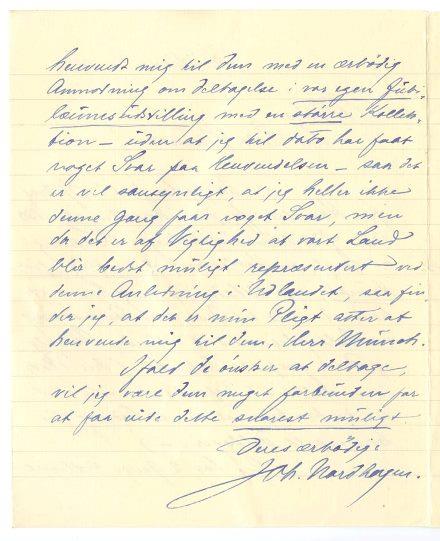 henvendt mig til Dem med en ærbödig
Anmodning om Deltagelse i vor egen Jubi-
læumsudstilling med en större Kollek-
tion – uden at jeg til dato har faat
noget Svar paa Henvendelsen – saa det
er vel sansynligt, at jeg heller ikke
denne Gang faar noget Svar, men
da det er af Vigtighed at vort Land
blir bedst muligt repræsentert ved
denne Anledning i Udlandet, saa fin-
der jeg, at det er min Pligt atter at
henvende mig til Dem, Herr Münch.
Ifald De önsker at deltage,
vil jeg være Dem meget forbunden for
at faa vide dette snarest muligt
Deres ærbödige
Joh. Nordhagen.